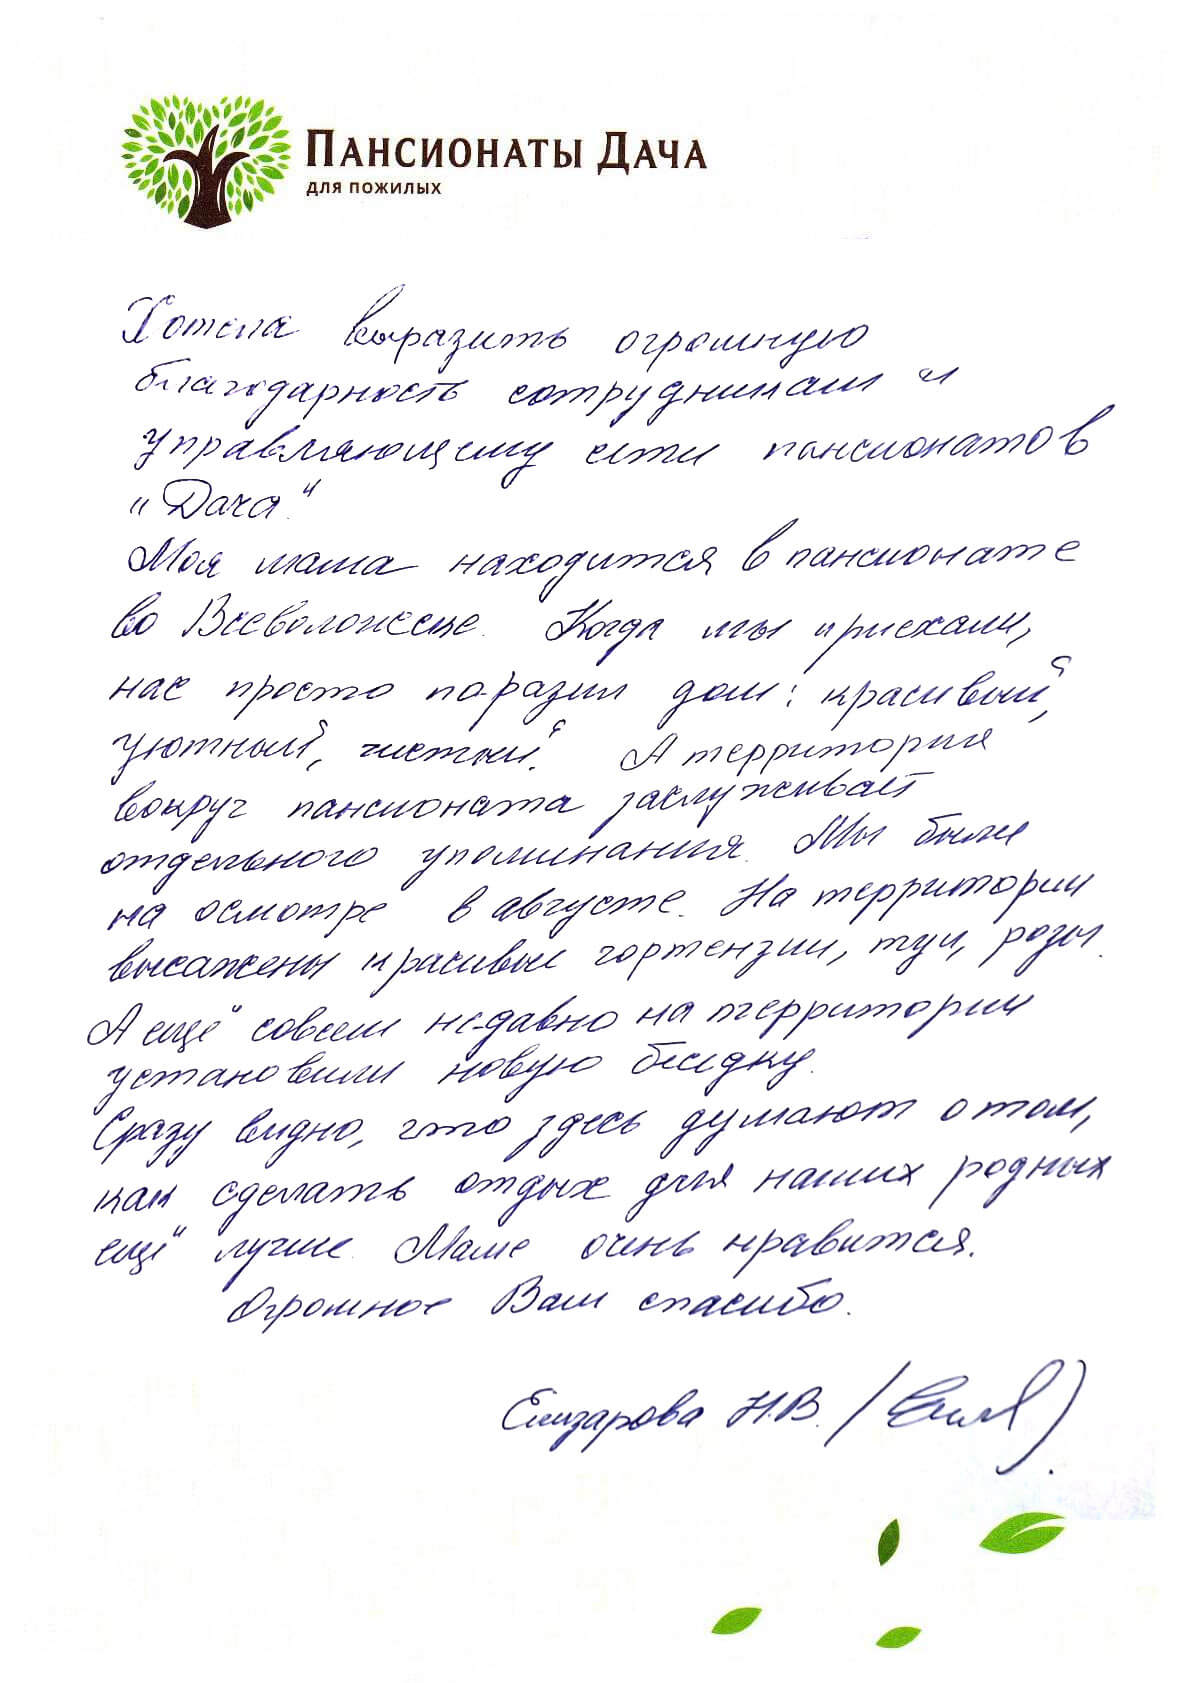 ПАНСИОНАТЫ ДАЧА
ДЛЯ ПОЖИЛЫХ
Хотела выразить огромную
благодарность сотрудникам и
управляющему сети пансионатов
"Дача".
Моя мама находится в пансионате
во Всеволожске. Когда мы приехали,
нас просто поразил дом: красивый,
уютный, чистый. А территория
вокруг пансионата заслуживает
отдельного упоминания. Мы были
на осмотре в августе. На территории
высажены красивые гортензии, туи, розы.
А ещё совсем недавно на территории
установили новую беседку.
Сразу видно, что здесь думают о том,
как сделать отдых для наших родных
ещё лучше. Маме очень нравится.
Огромное Вам спасибо.
Елизарова Н.В.